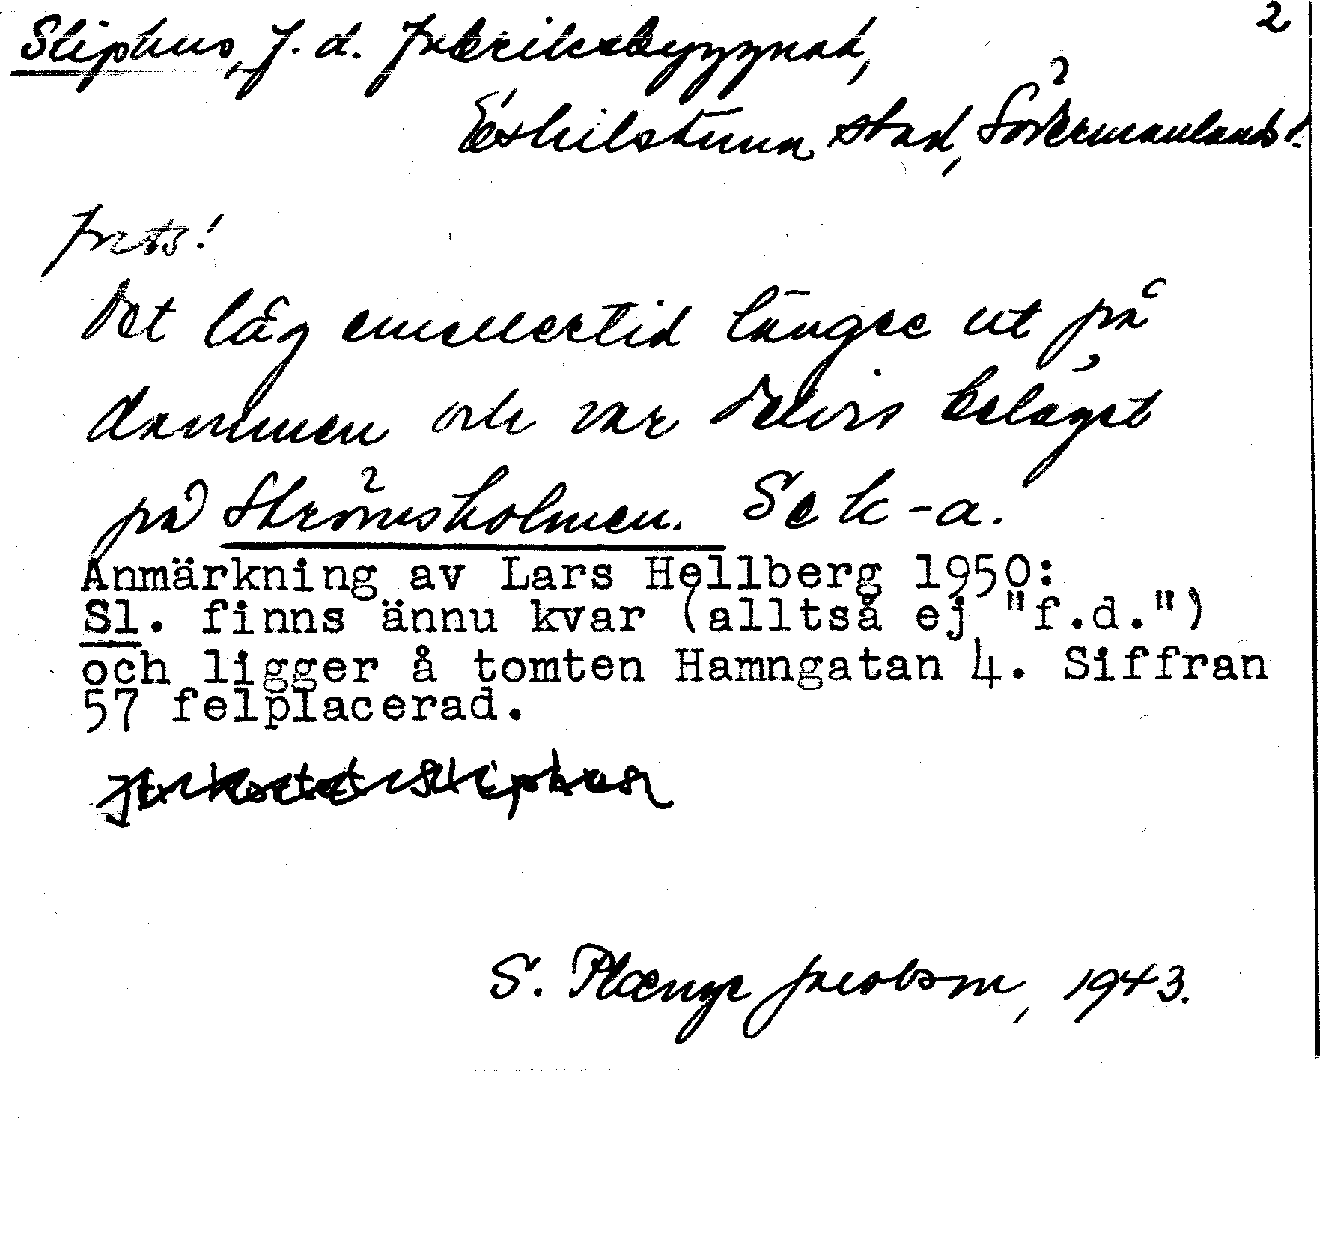 2
Sliphus, f. d. fabriksbyggnad,
Eskilstuna stad, Södermanlands l.
forts!
Det låg emellertid längre ut på
dammen och var delvis beläget
på Strömsholmen. Se k-a.
Anmärkning av Lars Hellberg 1950:
Sl. finns ännu kvar (alltså ej "f.d.")
och ligger å tomten Hamngatan 4. Siffran
57 felplacerad.
S. Plænge Jacobson, 1943.